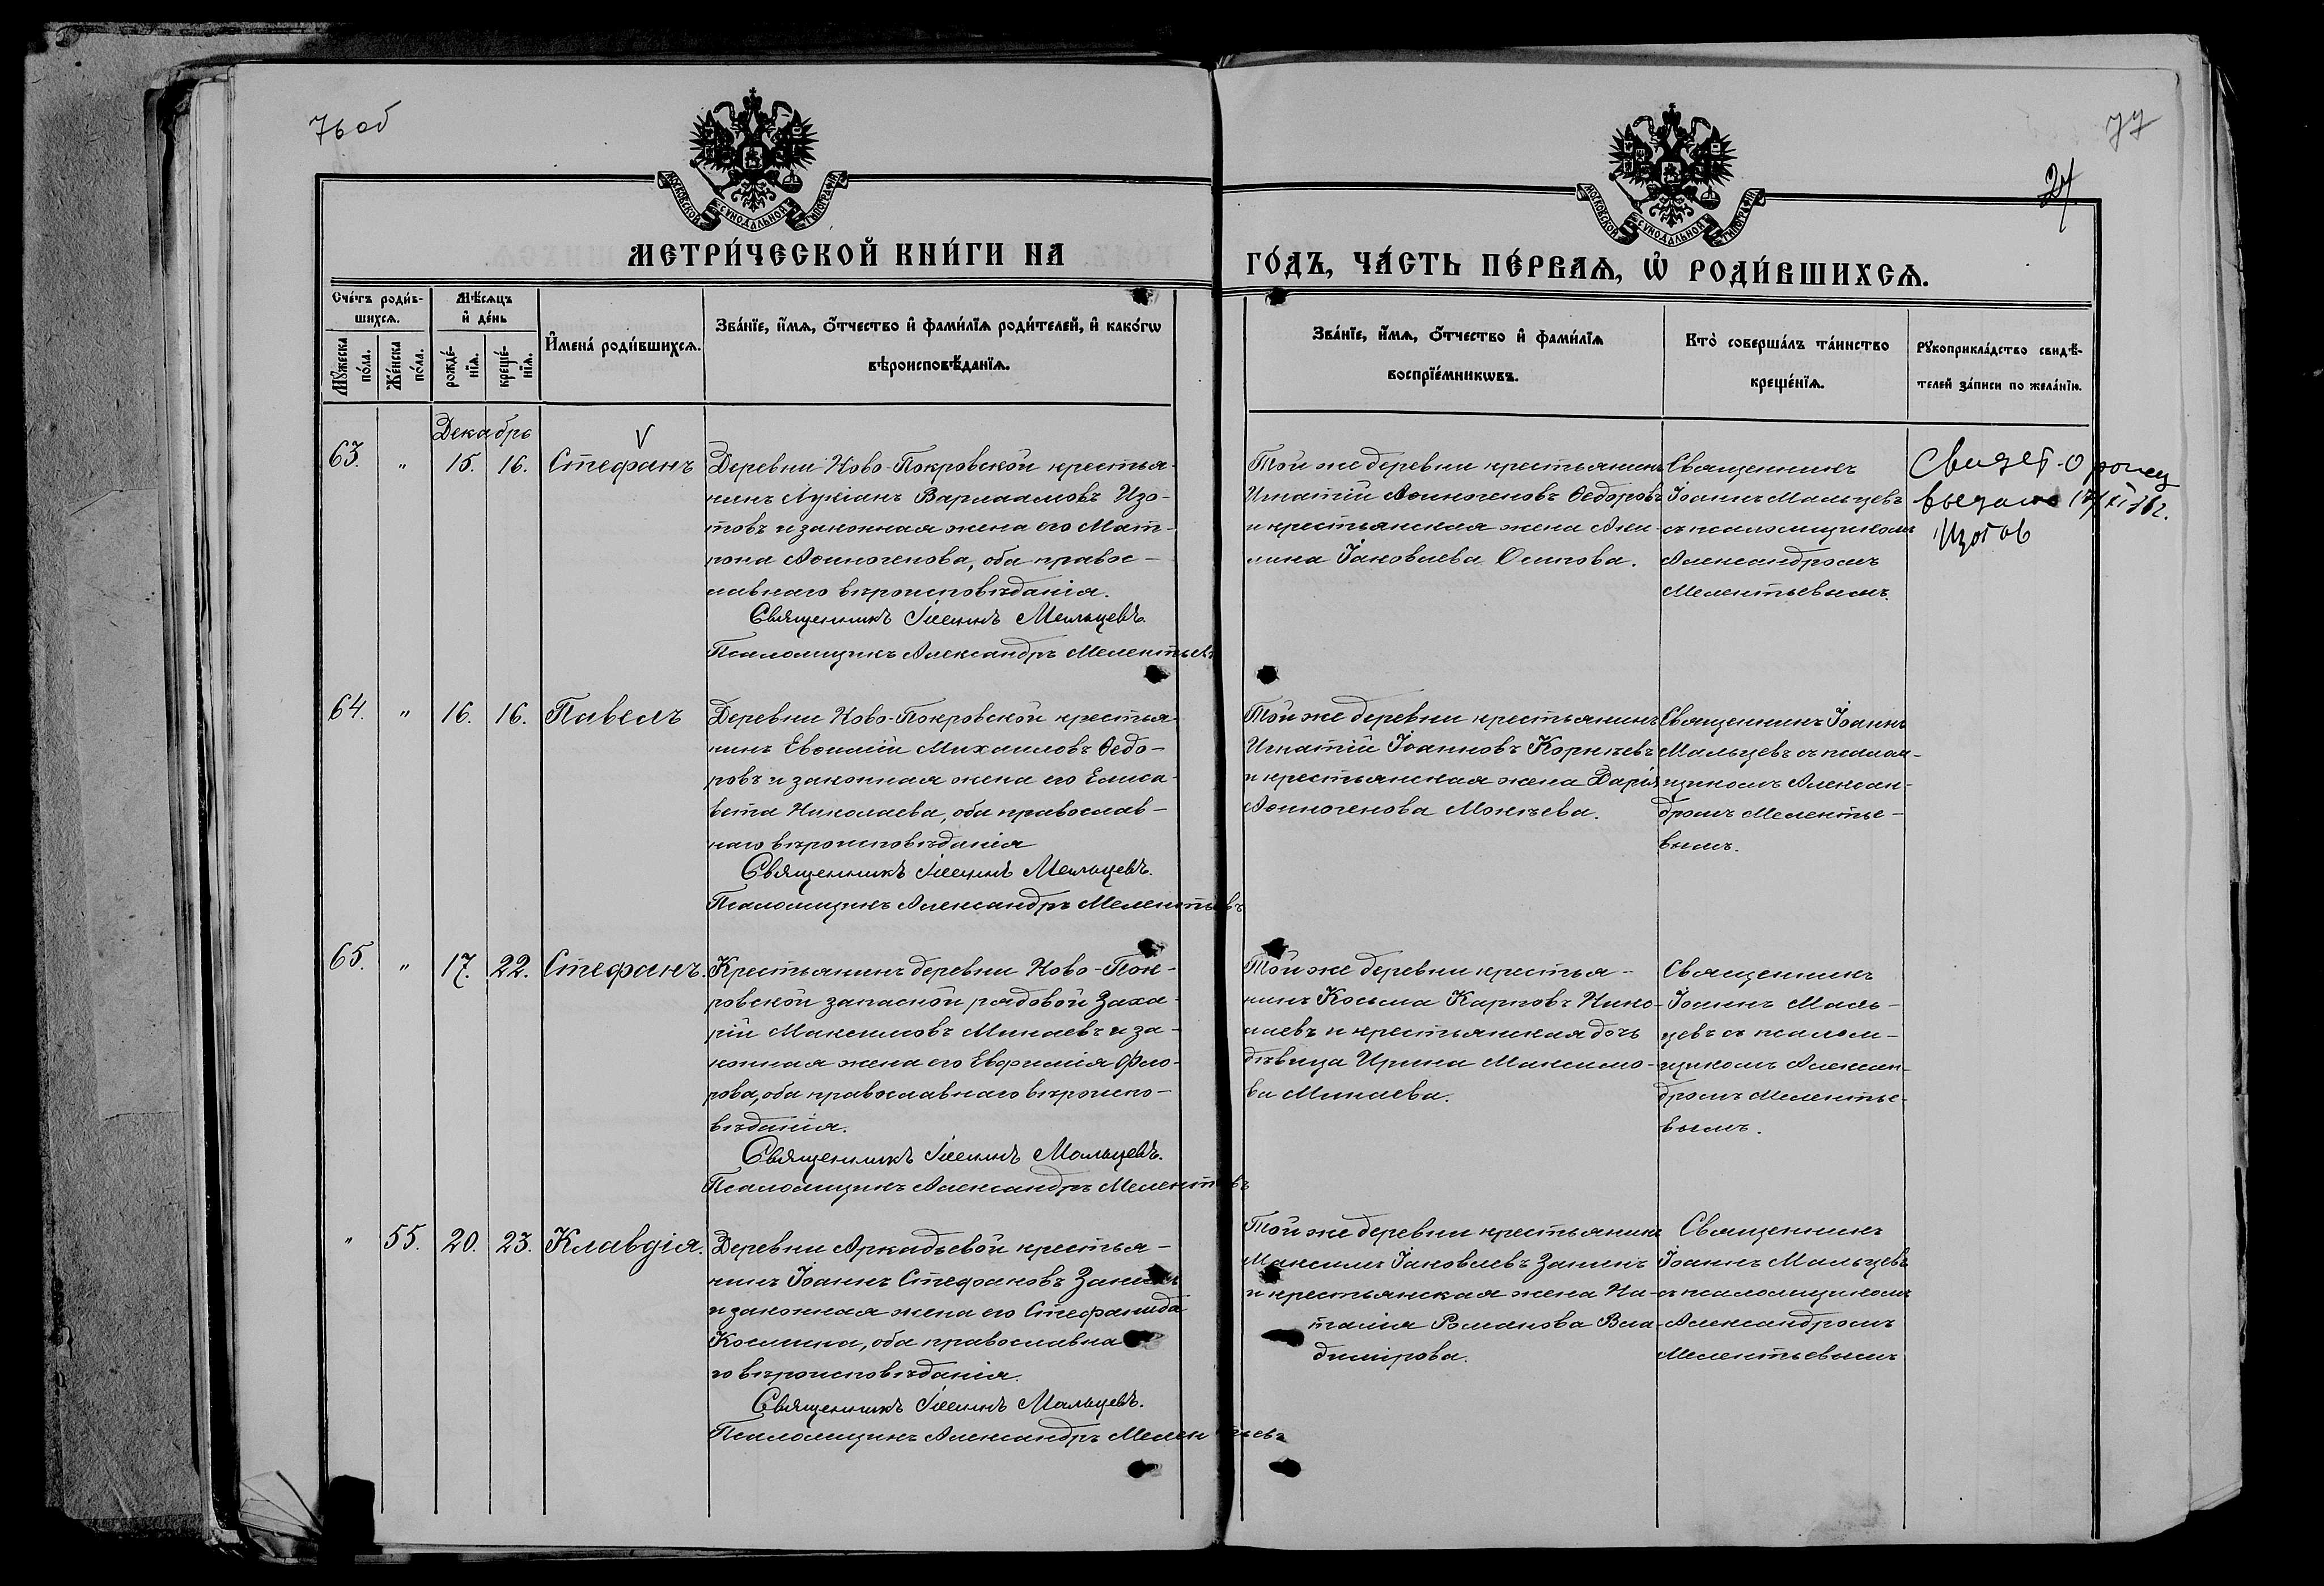 76 об
77
27
МОСКОВСКОЙ СѴНОДАЛЬНОЙ ТИПОГРАФІИ
МОСКОВСКОЙ СѴНОДАЛЬНОЙ ТИПОГРАФІИ
МЕТРИ́ЧЕСКОЙ КНИ́ГИ НА
ГО́ДЪ, ЧА́СТЬ ПЕ́РВАѦ, Ѡ҆ РОДИ́ВШИХСѦ.
Сче́тъ роди́в-
шихсѧ.
Мꙋ́жеска по́ла.
Же́нска по́ла.
Мѣ́сѧцъ
и҆ де́нь
рожде́-нїѧ.
креще́-нїѧ.
И҆мена̀ роди́вшихсѧ.
Зва́нїе, и҆́мѧ, ѻ҆́тчество и҆ фами́лїѧ роди́телей, и҆ како́гѡ
вѣроисповѣ́данїѧ.
Зва́нїе, и҆́мѧ, ѻ҆́тчество и҆ фами́лїѧ
воспрїе́мникѡвъ.
Кто̀ соверша́лъ та́инство
креще́нїѧ.
Рꙋкоприкла́дство свидѣ́-
телей за́писи по жела́нїю.
Декабрь
63. " 15. 16. Стефанъ
Деревни Ново-Покровской крестья-
нинъ Лукіанъ Варлаамовъ Изо-
товъ и законная жена его Мат-
рона Аѳиногенова, оба правос-
лавнаго вѣроисповѣданія.
Священникъ Іоаннъ Мальцевъ.
Псаломщикъ Александръ Мелентьевъ
Той же деревни крестьянинъ
Игнатій Аѳиногеновъ Ѳедоровъ
и крестьянская жена Аки-
лина Іаковлева Осипова.
Священникъ
Іоаннъ Мальцевъ
съ псаломщикомъ
Александромъ
Мелентьевымъ.
Свидет. о рожд
выдано
Изотов
64. " 16. 16. Павелъ
Деревни Ново-Покровской крестья-
нинъ Евѳимій Михаиловъ Ѳедо-
ровъ и законная жена его Елиса-
вета Николаева, оба православ-
наго вѣроисповѣданія
Священникъ Іоаннъ Мальцевъ.
Псаломщикъ Александръ Мелентьевъ
Той же деревни крестьянинъ
Игнатій Іоанновъ Корнѣевъ
и крестьянская жена Дарія
Аѳиногенова Мокѣева.
Священникъ Іоаннъ
Мальцевъ съ псалом-
щикомъ Алексан-
дромъ Мелентье-
вымъ.
65. " 17. 22. Стефанъ.
Крестьянинъ деревни Ново-Пок-
ровской запасной рядовой Заха-
рій Максимовъ Минаевъ и за-
конная жена его Евфимія Фло-
рова, оба православнаго вѣроиспо-
вѣданія.
Священникъ Іоаннъ Мальцевъ.
Псаломщикъ Александръ Мелентьевъ
Той же деревни крестья-
нинъ Косьма Карповъ Нико-
лаевъ и крестьянская дочь
дѣвица Ирина Максимо-
ва Минаева.
Священникъ
Іоаннъ Маль-
цевъ съ псалом-
щикомъ Алексан-
дромъ Мелентье-
вымъ.
" 55. 20. 23. Клавдія.
Деревни Аркадьевой крестья-
нинъ Іоаннъ Стефановъ Занинъ
и законная жена его Стефанида
Космина, оба православна
го вѣроисповѣданія.
Священникъ Іоаннъ Мальцевъ.
Псаломщикъ Александръ Мелентьевъ
Той же деревни крестьянинъ
Максимъ Іаковлевъ Занинъ
и крестьянская жена На-
талія Романова Вла-
димірова.
Священникъ
Іоаннъ Мальцевъ
съ псаломщикомъ
Александромъ
Мелентьевымъ